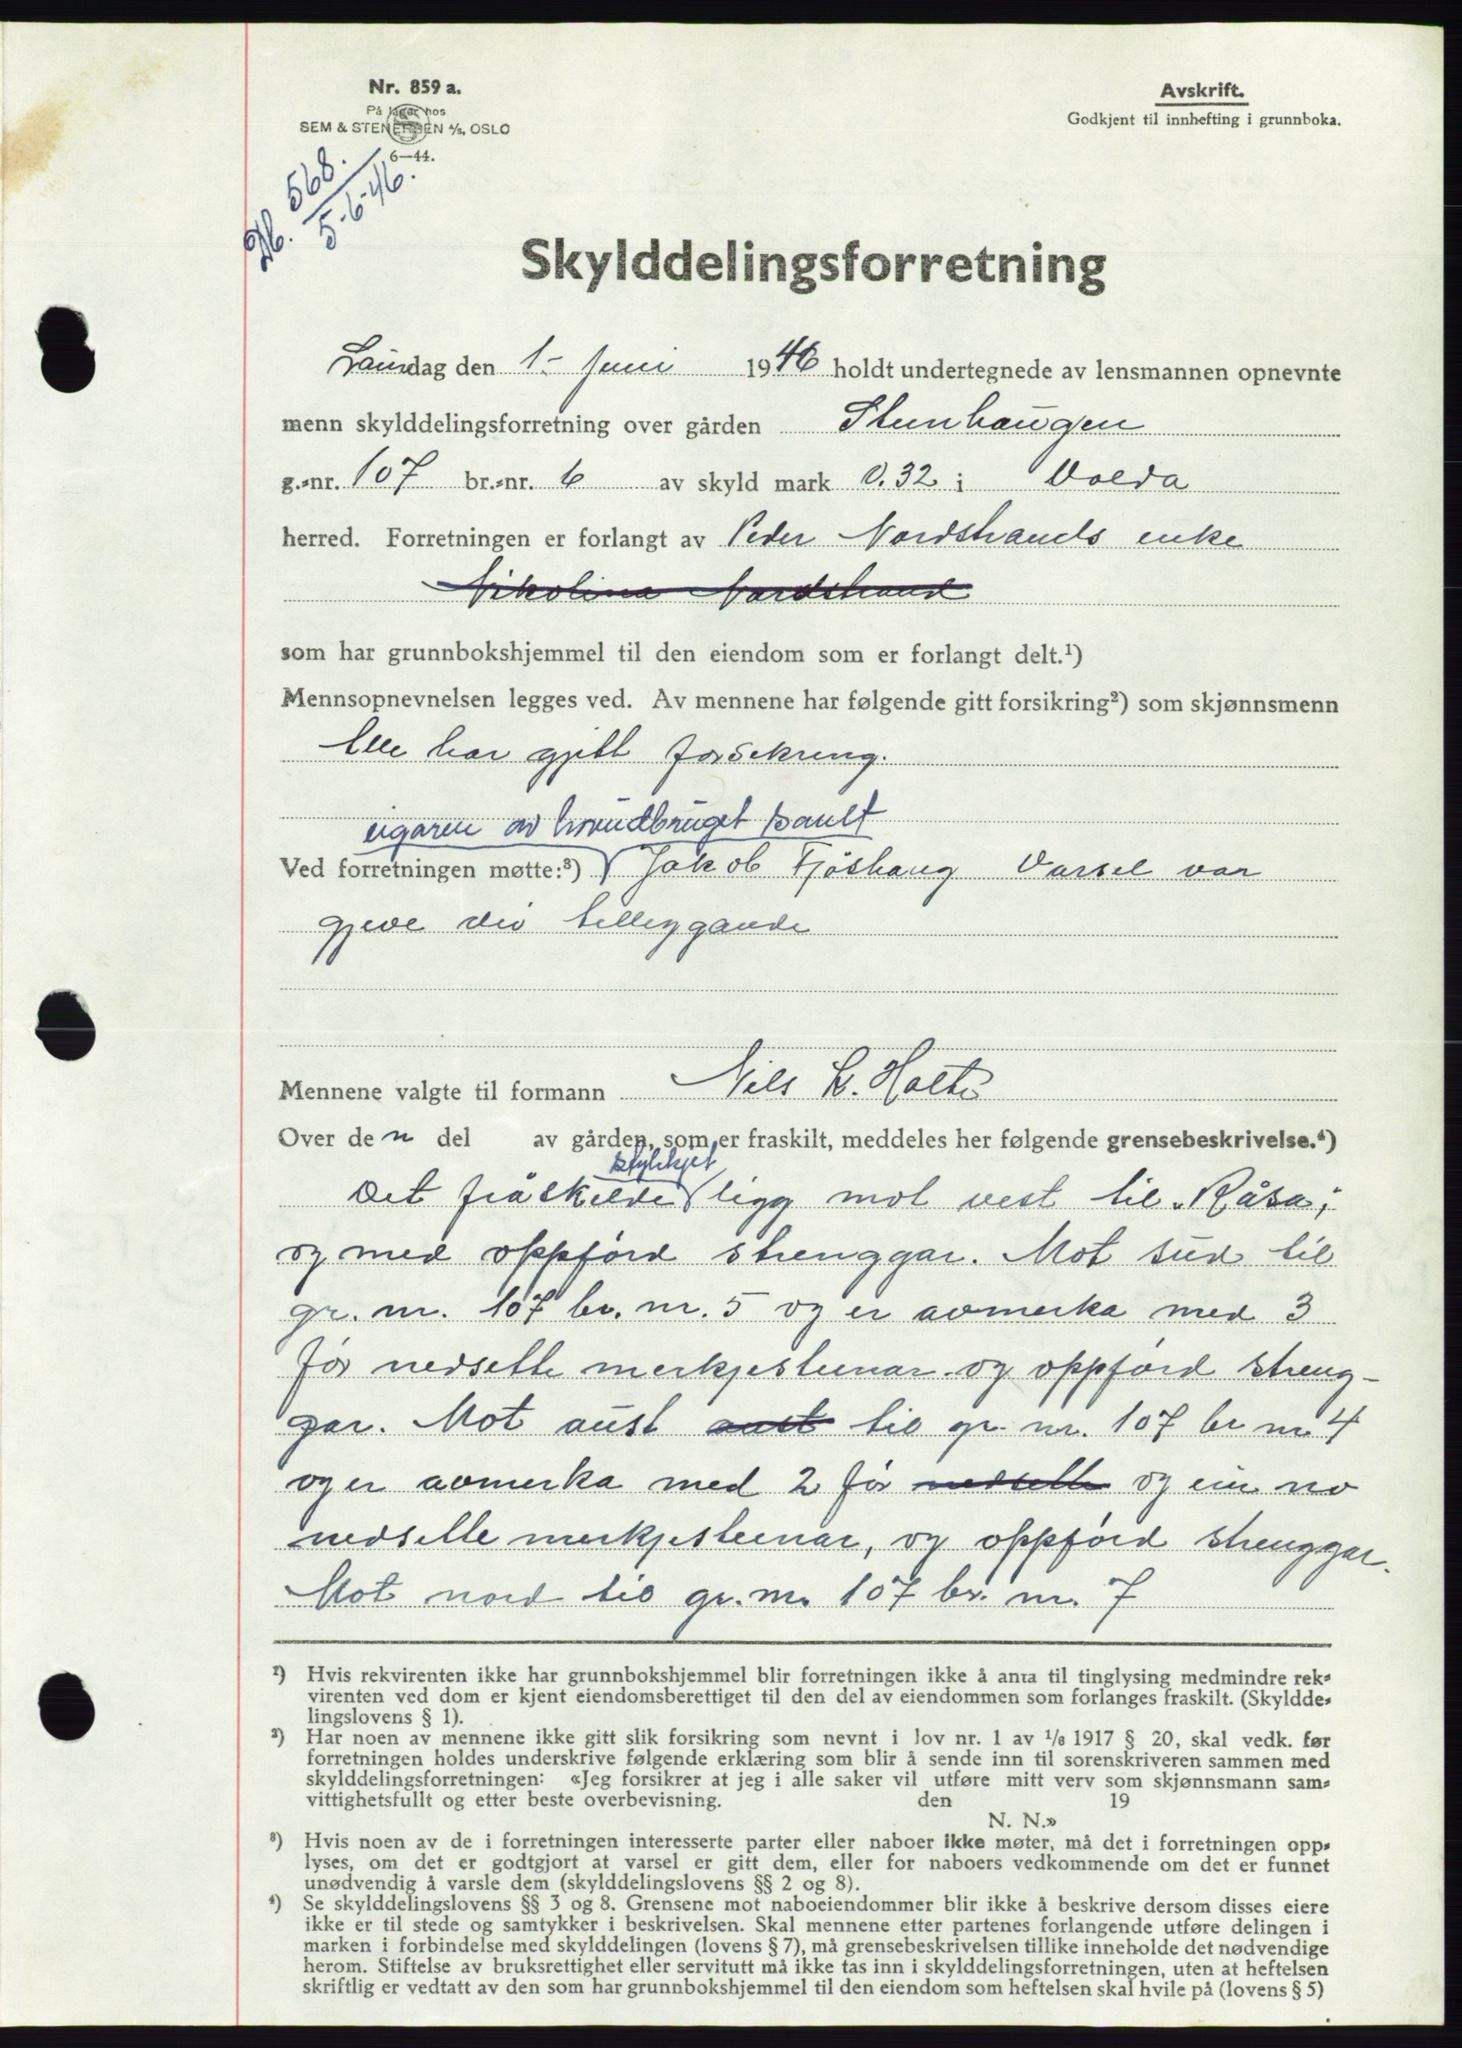 Nr. 859 a.
På lager hos
SEM & STENERSEN A/S, OSLO
6—44.
Avskrift.
Godkjent til innhefting i grunnboka.
Db. 568.
5-6-46.
Skylddelingsforretning
Laurdag den 1. juni 1946 holdt undertegnede av lensmannen opnevnte
menn skylddelingsforretning over gården Stenhaugen
g.-nr. 107 br.-nr. 6 av skyld mark 0.32 i Volda
herred. Forretningen er forlangt av Peder Nordstrands enke
Nikolina Nordstrand
som har grunnbokshjemmel til den eiendom som er forlangt delt.¹)
Mennsopnevnelsen legges ved. Av mennene har følgende gitt forsikring²) som skjønnsmenn
Alle har gjitt forsekring.
eigaren av hovudbruget samt
Ved forretningen møtte:³) Jakob Fjøshaug Varsel var
gjeve dei tilleggande
Mennene valgte til formann Nils K. Holte
Over den del av gården, som er fraskilt, meddeles her følgende grensebeskrivelse.⁴)
stykkjet
Det fråskilde ligg mot vest til „Råsa",
og med oppførd strenggar. Mot sud til
gr. nr. 107 br. nr. 5 og er avmerka med 3
før nedsette merkjesteinar og oppførd streng-
gar. Mot aust aust til gr. nr. 107 br nr 4
og er avmerka med 2 før nedsette og ein no
nedsette merkjesteinar, og oppførd strenggar.
Mot nord til gr. nr. 107 br. nr. 7
¹) Hvis rekvirenten ikke har grunnbokshjemmel blir forretningen ikke å anta til tinglysing medmindre rek-
virenten ved dom er kjent eiendomsberettiget til den del av eiendommen som forlanges fraskilt. (Skyldde-
lingslovens § 1).
²) Har noen av mennene ikke gitt slik forsikring som nevnt i lov nr. 1 av 1/6 1917 § 20, skal vedk. før
forretningen holdes underskrive følgende erklæring som blir å sende inn til sorenskriveren sammen med
skylddelingsforretningen: «Jeg forsikrer at jeg i alle saker vil utføre mitt verv som skjønnsmann sam-
vittighetsfullt og etter beste overbevisning. den 19
N. N.»
³) Hvis noen av de i forretningen interesserte parter eller naboer ikke møter, må det i forretningen opp-
lyses, om det er godtgjort at varsel er gitt dem, eller for naboers vedkommende om det er funnet
unødvendig å varsle dem (skylddelingslovens §§ 2 og 8).
⁴) Se skylddelingslovens §§ 3 og 8. Grensene mot naboeiendommer blir ikke å beskrive dersom disses eiere
ikke er til stede og samtykker i beskrivelsen. Skal mennene etter partenes forlangende utføre delingen i
marken i forbindelse med skylddelingen (lovens § 7), må grensebeskrivelsen tillike inneholde det nødvendige
herom. Stiftelse av bruksrettighet eller servitutt må ikke tas inn i skylddelingsforretningen, uten at heftelsen
skriftlig er vedtatt av den som har grunnbokshjemmel til den eiendom som heftelsen skal hvile på (lovens § 5)